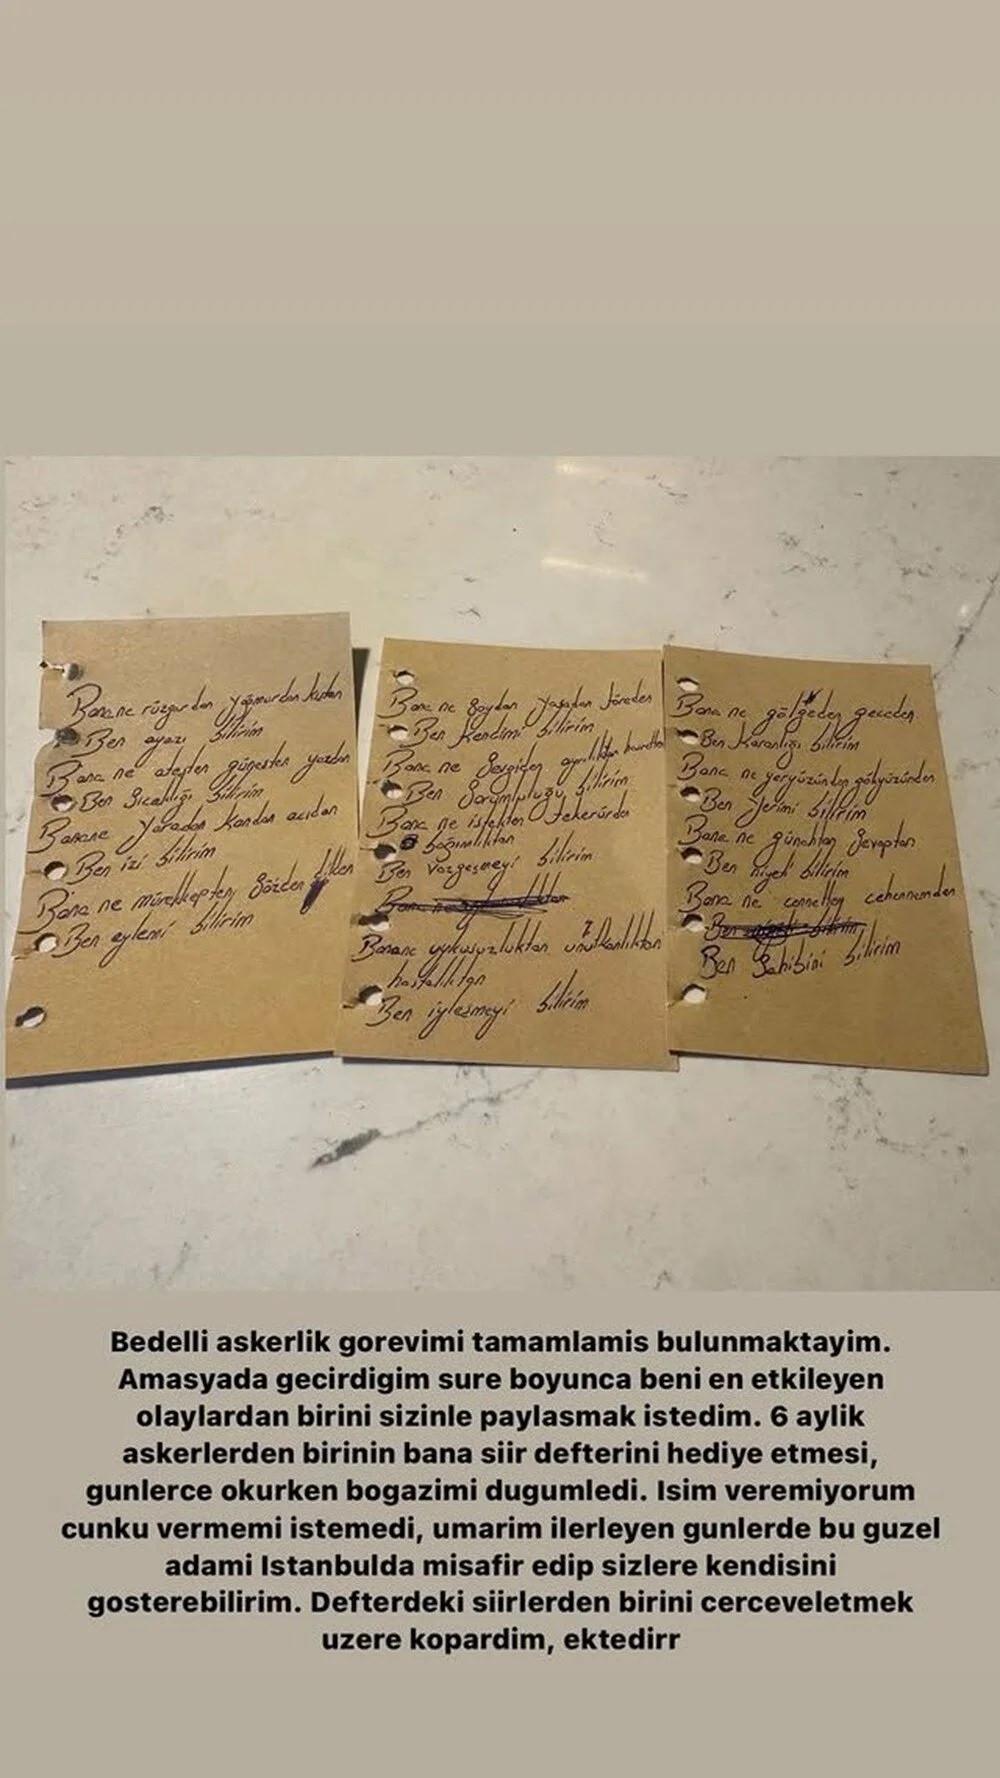 Bana ne rüzgardan yağmurdan kıştan
Ben ayazı bilirim
Bana ne ateşten güneşten yazdan
Ben Sıcaklığı bilirim
Banane yaradan kandan acıdan
Ben izi bilirim
Bana ne mürekkepten Sözden
Ben eylemi bilirim
Bana ne Soydan yasadan töreden
Ben Kendimi bilirim
Bana ne Sevgiden ayrılıktan hasretten
Ben Sorumluluğu bilirim
Bana ne istekten tekerürden
bağımlılıktan
Ben Vazgeçmeyi bilirim
Banane uykusuzluktan unutkanlıktan
hastalıktan
Ben iyleşmeyi bilirim
Bana ne gölgeden geceden
Ben Karanlığı bilirim
Bana ne yeryüzünden gökyüzünden
Ben Yerimi bilirim
Bana ne günahtan Sevaptan
Ben niyeti bilirim
Bana ne cennetten cehennemden
Ben Sahibini bilirim
Bedelli askerlik gorevimi tamamlamis bulunmaktayim.
Amasyada gecirdigim sure boyunca beni en etkileyen
olaylardan birini sizinle paylasmak istedim. 6 aylik
askerlerden birinin bana siir defterini hediye etmesi,
gunlerce okurken bogazimi dugumledi. Isim veremiyorum
cunku vermemi istemedi, umarim ilerleyen gunlerde bu guzel
adami Istanbulda misafir edip sizlere kendisini
gosterebilirim. Defterdeki siirlerden birini cerceveletmek
uzere kopardim, ektedirr